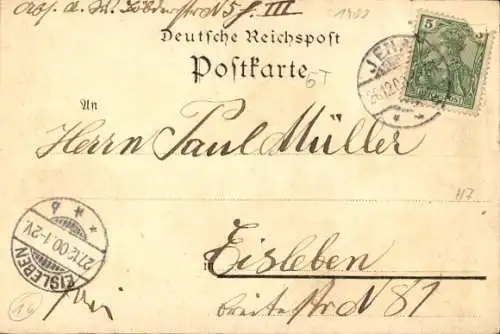 str N 5 f. III
1900
Deutsche Reichspost
Postkarte
6T
5
JENA
26.12.00
An
Herrn Paul Müller
H7
EISLEBEN
27.12.00.1-2V.
Eisleben
frei
breitestr N 81
16